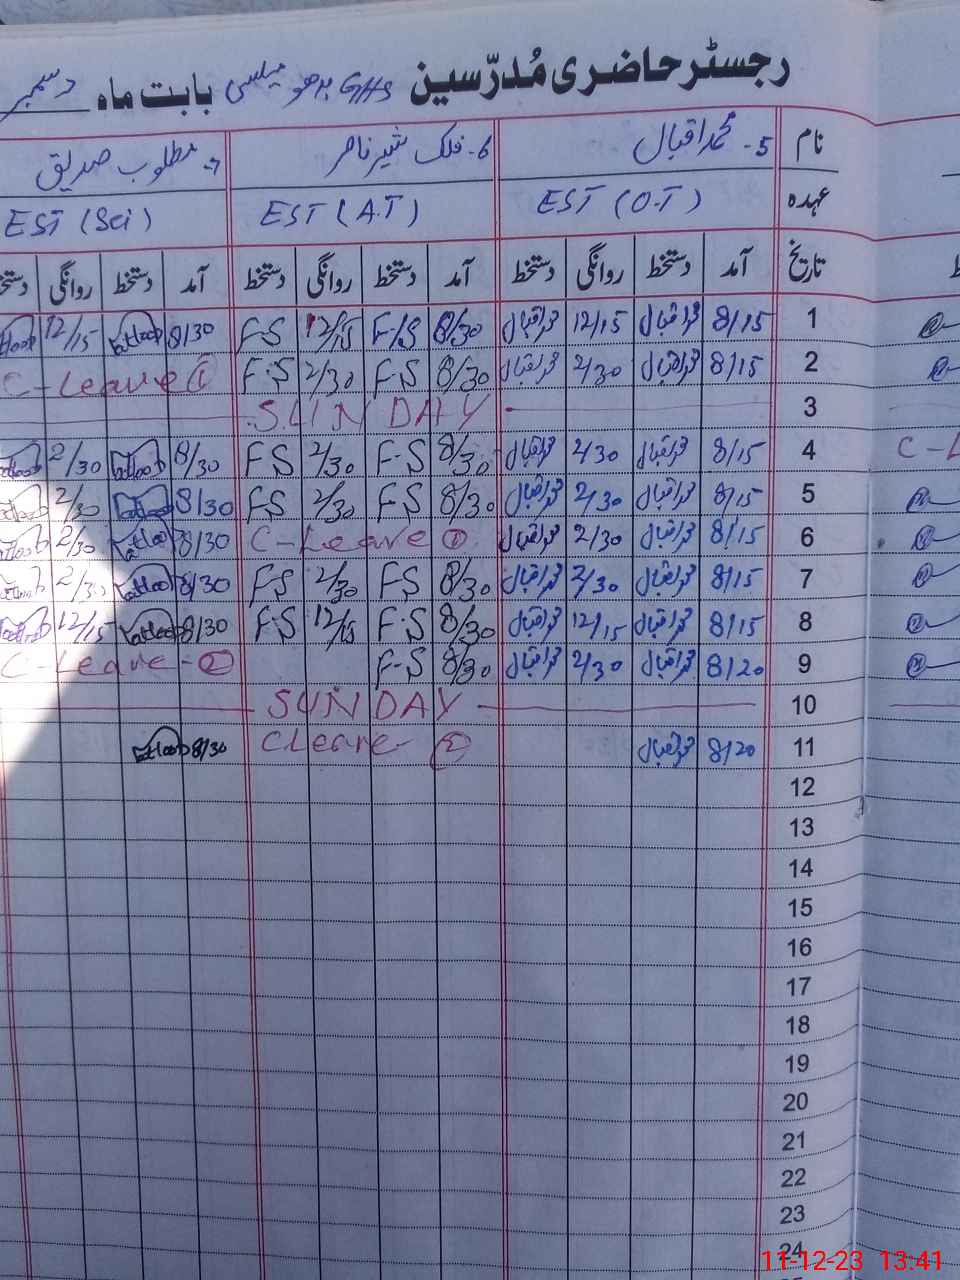 رجسٹر حاضری مُدرّسین GHS بدھو میلسی بابت ماہ دسمبر
نام 5- محمد اقبال 6- فلک شیر ناصر 7- مطلوب صدیق
عہدہ EST (O.T) EST (A.T) EST (Sci)
تاریخ آمد دستخط روانگی دستخط آمد دستخط روانگی دستخط آمد دستخط روانگی دستخط
1 8/15 محمد اقبال 12/15 محمد اقبال 8/30 F/S 12/15 FS 8/30 Matloob 12/15
2 8/15 محمد اقبال 2/30 محمد اقبال 8/30 F-S 2/30 F.S C-Leave ①
3 SUNDAY
4 8/15 محمد اقبال 2/30 محمد اقبال 8/30 F-S 2/30 FS 8/30 Matloob 2/30 C-L
5 8/15 محمد اقبال 2/30 محمد اقبال 8/30 F-S 2/30 FS 8/30 Matloob 2/30
6 8/15 محمد اقبال 2/30 محمد اقبال C-Leave ① 8/30 Matloob 2/30
7 8/15 محمد اقبال 2/30 محمد اقبال 8/30 FS 2/30 FS 8/30 Matloob 2/30
8 8/15 محمد اقبال 12/15 محمد اقبال 8/30 F.S 12/15 F.S 8/30 Matloob 12/15
9 8/20 محمد اقبال 2/30 محمد اقبال 8/30 F-S C-Leave-②
10 SUNDAY
11 8/20 محمد اقبال CLeave- ② 8/30 Matloob
12
13
14
15
16
17
18
19
20
21
22
23
24
11-12-23 13:41